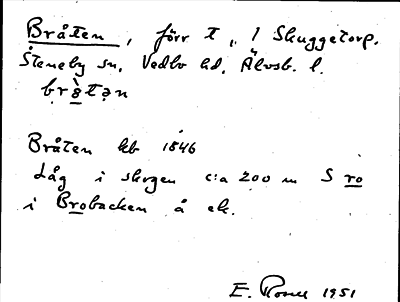 Bråten, förr t, 1 Skuggetorp.
Steneby sn, Vedbo hd, Älvsb. l.
Bråten kb 1846
Låg i skogen c:a 200 m S ro
i Brobacken å ek.
E. Rosell 1951